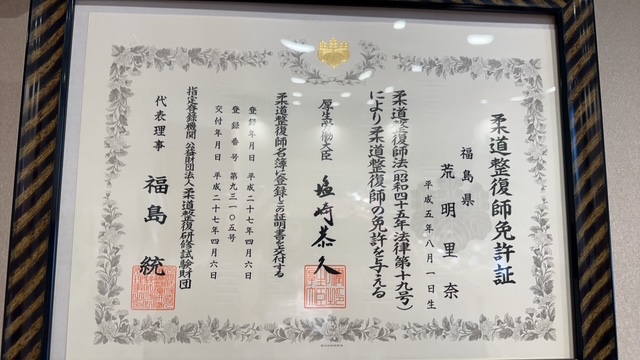 柔道整復師免許証
福島県
荒明里奈
平成五年八月一日生
柔道整復師法(昭和四十五年法律第十九号)
により柔道整復師の免許を与える
厚生労働大臣 塩崎恭久
柔道整復師名簿に登録しこの証明書を交付する
登録年月日 平成二十七年四月六日
登録番号 第九三一〇五号
交付年月日 平成二十七年四月六日
指定登録機関 公益財団法人柔道整復研修試験財団
代表理事 福島統